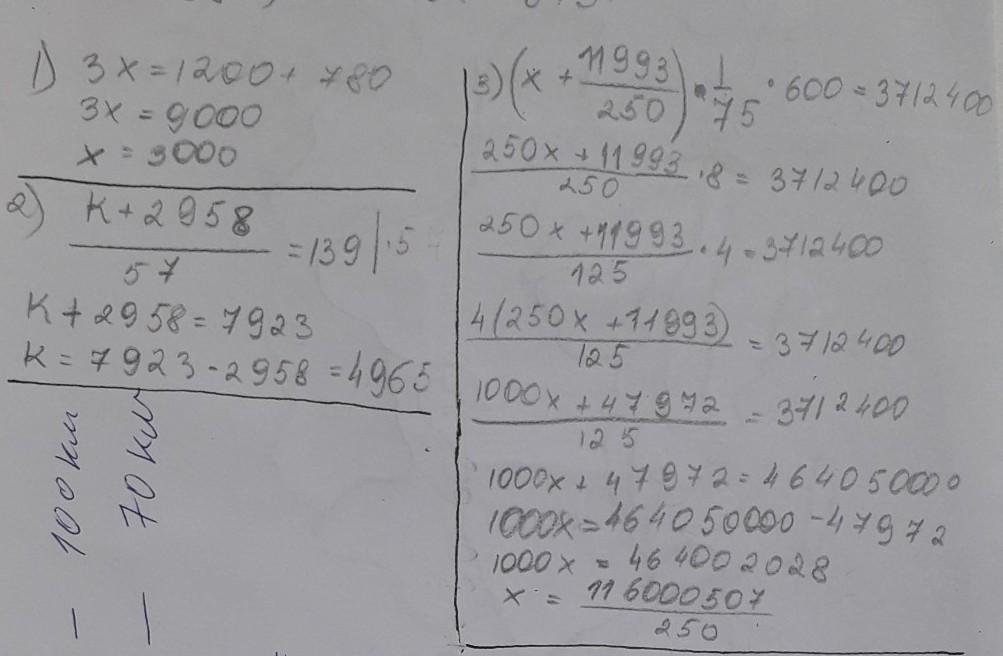 1) 3x = 1200 + 780
3x = 9000
x = 3000
2) K + 2958 / 57 = 139 | · 5
K + 2958 = 7923
K = 7923 - 2958 = 4965
— 100 км
— 70 км
3) (x + 11993 / 250) · 1 / 75 · 600 = 3712400
250x + 11993 / 250 · 8 = 3712400
250x + 11993 / 125 · 4 = 3712400
4(250x + 11993) / 125 = 3712400
1000x + 47972 / 125 = 3712400
1000x + 47972 = 464050000
1000x = 464050000 - 47972
1000x = 464002028
x = 116000507 / 250